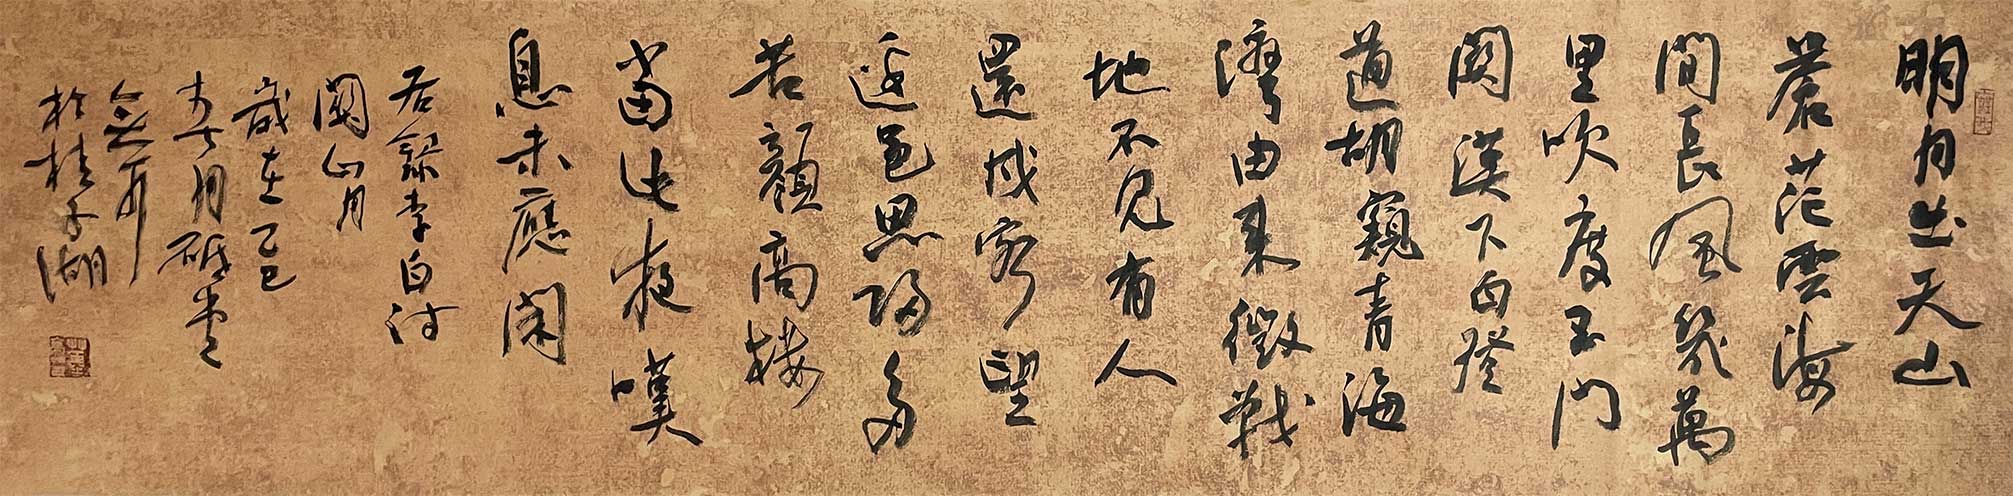 明月出天山
蒼茫雲海
間長風幾萬
里吹度玉門
関漢下白登
道胡窺青海
灣由來徵戰
地不見有人
還戍客望
邊邑思歸多
苦顏高樓
當此夜嘆
息未應閑
右錄李白詩
關山月
歲在乙巳
春月砥堂
於桂子湖